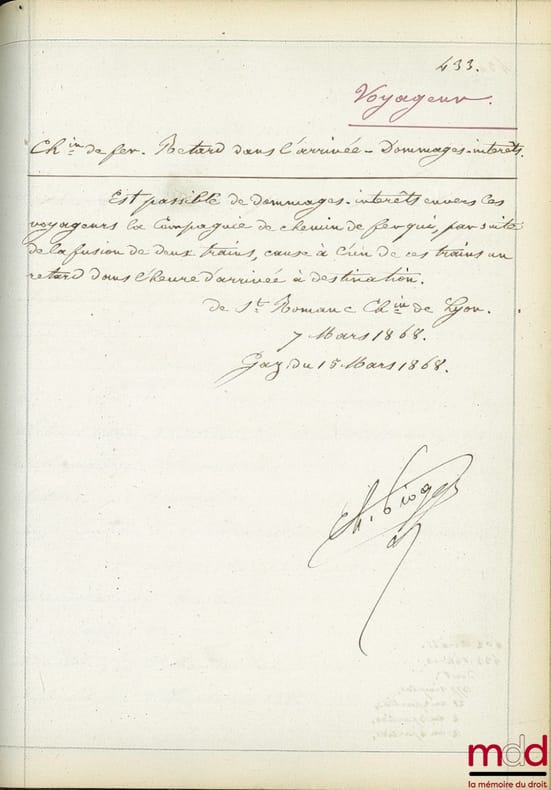 433.
Voyageur.
Ch.in de fer. Retard dans l'arrivée – Dommages-interêts.
Est passible de dommages-interêts envers les
voyageurs la Compagnie de chemin de fer qui, par suite
de la fusion de deux trains, cause à l'un de ces trains un
retard dans l'heure d'arrivée à destination.
de St. Roman C Ch.in de Lyon.
7 Mars 1868.
Gaz. du 15 Mars 1868.
mdd
la mémoire du droit